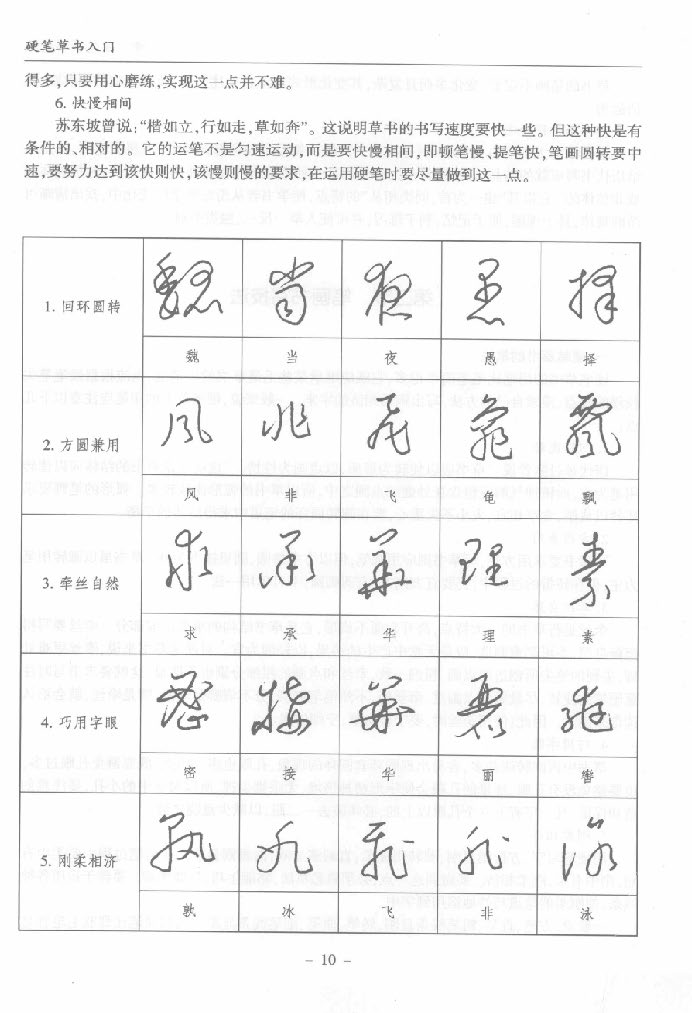 硬笔草书入门
得多,只要用心磨练,实现这一点并不难。
6. 快慢相间
苏东坡曾说:“楷如立,行如走,草如奔”。这说明草书的书写速度要快一些。但这种快是有
条件的、相对的。它的运笔不是匀速运动,而是要快慢相间,即顿笔慢、提笔快,笔画圆转要中
速,要努力达到该快则快,该慢则慢的要求,在运用硬笔时要尽量做到这一点。
1. 回环圆转
魏 当 夜 愚 择
2. 方圆兼用
风 非 飞 龟 飘
3. 牵丝自然
求 承 华 理 素
4. 巧用字眼
密 接 华 丽
5. 刚柔相济
孰 冰 飞 非 泳
- 10 -